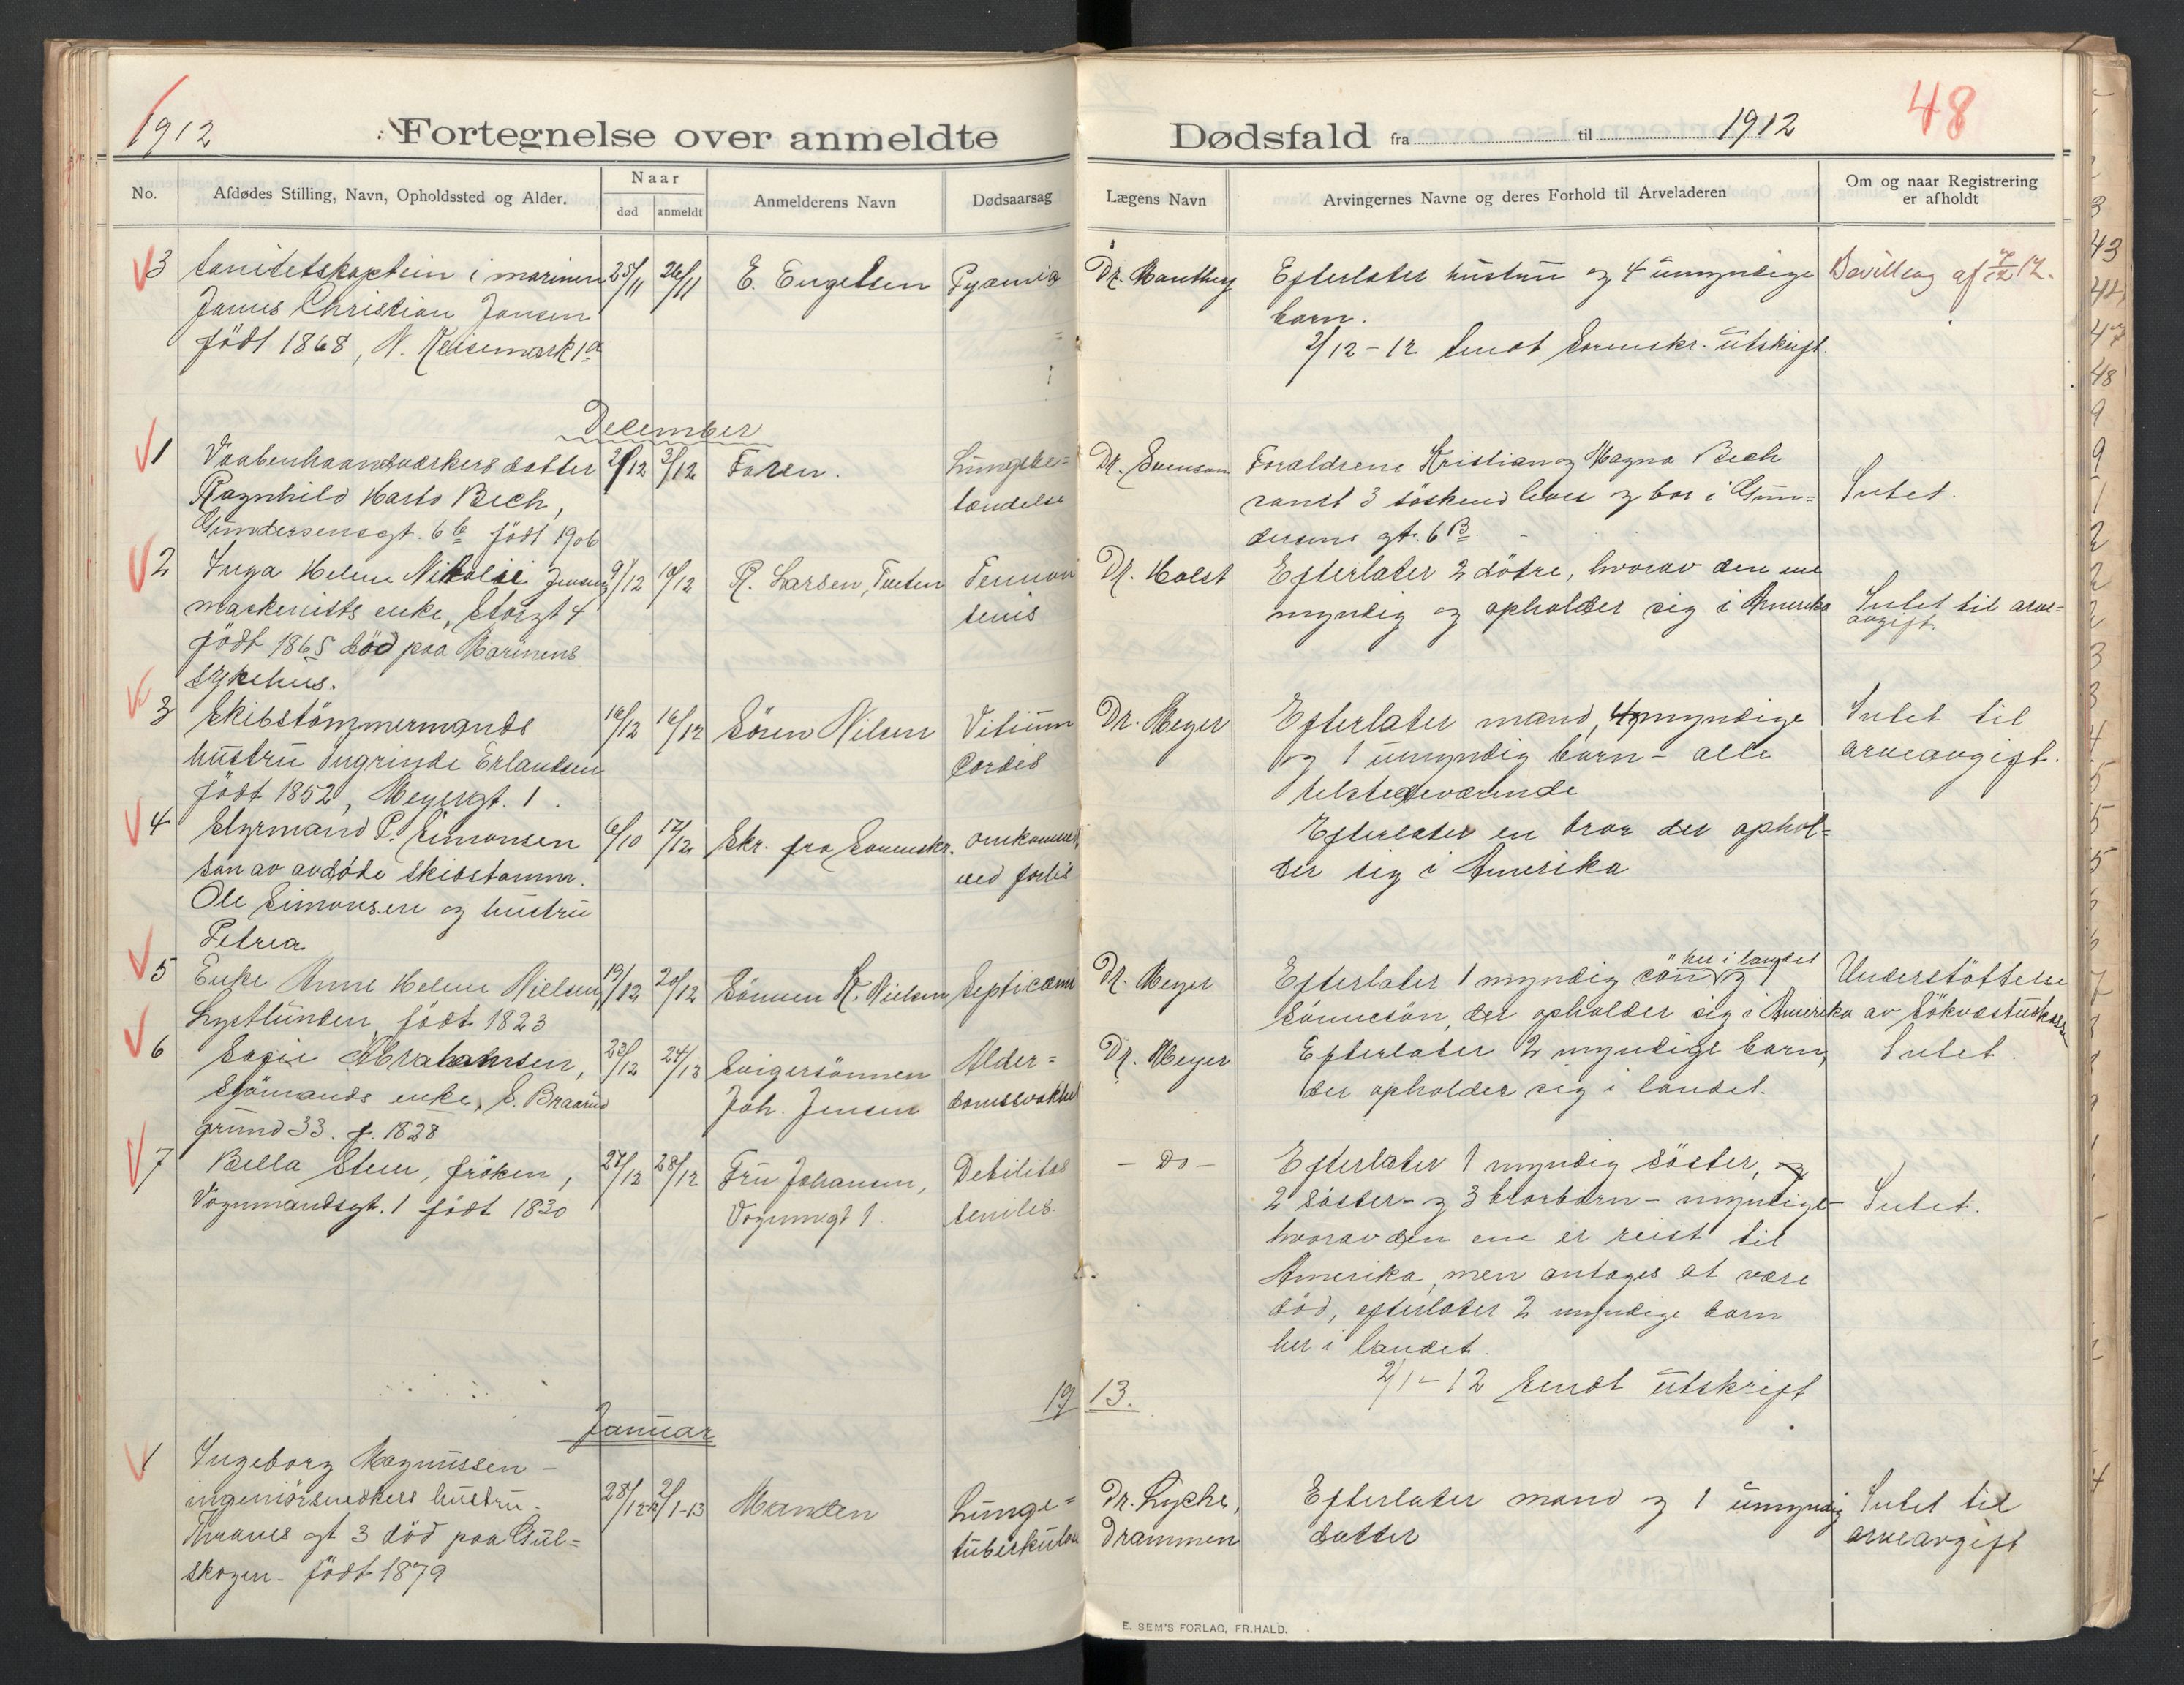 1912
Fortegnelse over anmeldte
Dødsfald fra til 1912
48
No.
Afdødes Stilling, Navn, Opholdssted og Alder.
Naar
død
anmeldt
Anmelderens Navn
Dødsaarsag
Lægens Navn
Arvingernes Navne og deres Forhold til Arveladeren
Om og naar Registrering
er afholdt
3 Sanitetskaptein i marinen 25/11 26/11 E. Engelsen Pyæmia
Janus Christian Jansen
född 1868, N.
Dr. Efterlater hustru og 4 umyndige Bevilling af 7/12 12.
barn.
2/12-12 Sendt Sorenskr. utskrift.
December
1 Vaabenhaandverkers datter 2/12 3/12 Faren. Lungebe=
Ragnhild Marto Bech, tændelse
Gundersensgt. 6b född 1906
Dr. Svenson Forældrene Kristian og Magna Bech
samt 3 söskend leves og bor i Gun= Intet.
dersens gt. 6B.
2 Inga Helene Nikolie Jensen, 9/12 10/12 R. Larsen, Tusten
maskenists enke, Storgt 4
född 1865 död paa Marinens
sykehus.
Dr. Holst Efterlater 2 dötre, hvorav den ene
myndig og opholder sig i Amerika Intet til arve=
avgift.
3 Skibstömmermands 16/12 16/12 Sören Nilsen Vitium
hustru Ingrinde Erlandsen Cordis
född 1852, Meyergt. 1.
Dr. Meyer Efterlater mand, 4 myndige Intet til
og 1 umyndig barn - alle arveavgift.
tilstedeværende
4 Styrmand P. Simonsen 6/10 17/12 Skr. fra Sorenskr. omkommet
sön av avdöde skibstömm. ved forlis
Ole Simonsen og hustru
Petrea
Efterlater en bror der ophol=
der sig i Amerika
5 Enke Anne Helene Nielsen, 19/12 20/12 Sönnen K. Nielsen Septicæmi
Lystlunden, född 1823
Dr. Meyer Efterlater 1 myndig sön her i landet og 1 Understöttelse
Sönnesön, der opholder sig i Amerika av
6 Sofie Abrahamsen, 23/12 24/12 Svigersönnen Alder=
Sjömands enke, S. Braarud Joh. Jensen domssvakhet
grund 33. f. 1828
Dr. Meyer Efterlater 2 myndige barn, Intet.
der opholder sig i landet.
7 Bella Steen, fröken, 27/12 28/12 Fru Johansen, Debilitas
Vognmandsgt. 1 född 1830 Vognmgt 1. senilis.
- Do - Efterlater 1 myndig söster, og
2 söster- og 3 brorbarn - myndige - Intet.
hvorav den ene er reist til
Amerika, men antages at være
död, efterlater 2 myndige barn
her i landet.
2/1-12 Sendt utskrift
1913.
Januar
1 Ingeborg Magnussen -
ingeniörsnedkers hustru. 28/12-12 2/1-13 Manden Lunge=
Thranes gt 3 död paa Gul= tuberkulose
skogen - född 1879
Dr. Lyche, Efterlater mand og 1 umyndig Intet til
Drammen datter arveavgift
E. SEM'S FORLAG, FR.HALD.